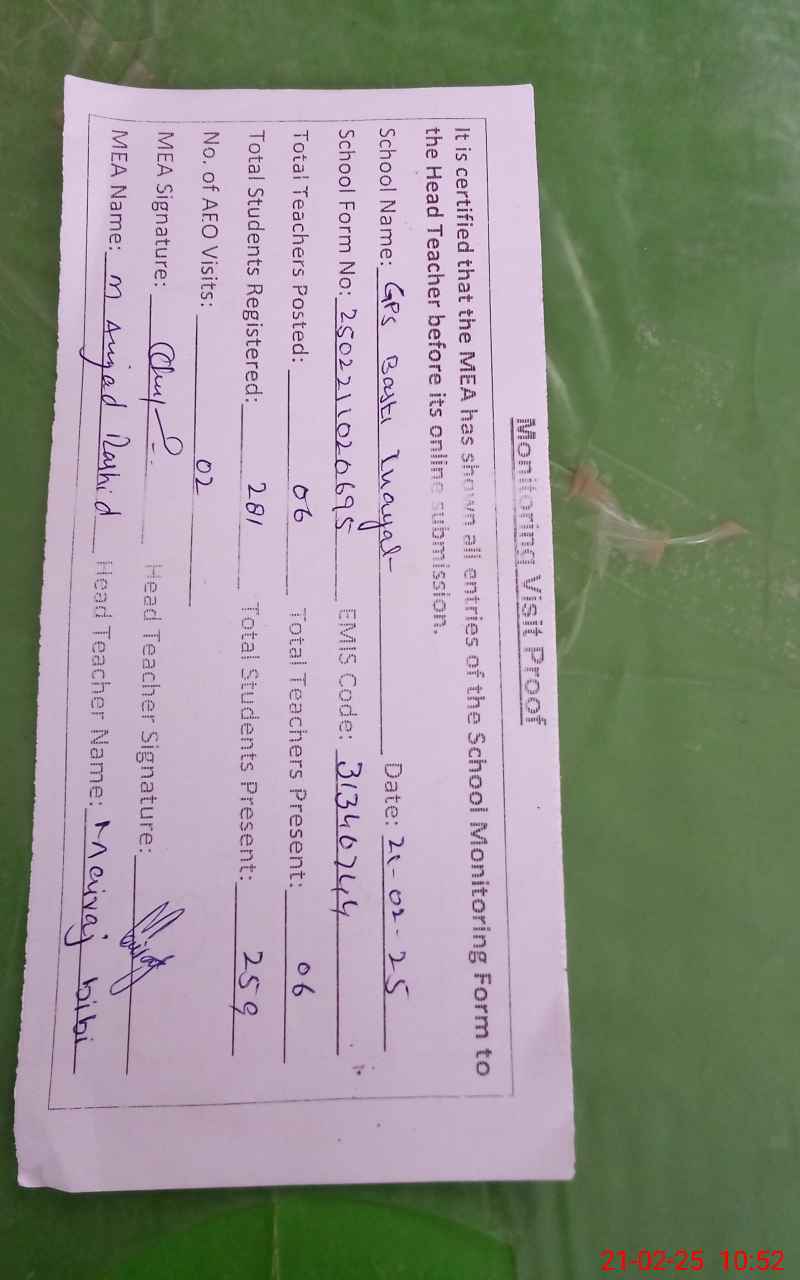 Monitoring Visit Proof
It is certified that the MEA has shown all entries of the School Monitoring Form to
the Head Teacher before its online submission.
School Name: GPS Basti Inayat Date: 21-02-25
School Form No: 2502211020695 EMIS Code: 31346744
Total Teachers Posted: 06 Total Teachers Present: 06
Total Students Registered: 281 Total Students Present: 259
No. of AEO Visits: 02
MEA Signature: Head Teacher Signature:
MEA Name: M Amjad Rashid Head Teacher Name: Mairaj bibi
21-02-25 10:52